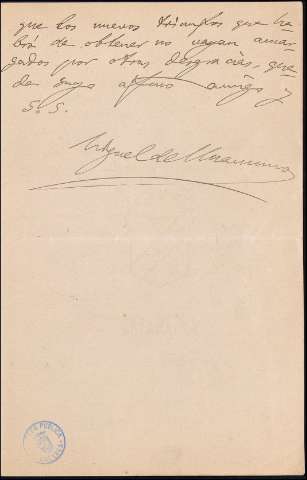 que los nuevos triunfos que ha-
brá de obtener no vayan amar-
gados por otras desgracias, que-
da suyo affmo amigo y
S. S.
Miguel de Unamuno
PUBLICA